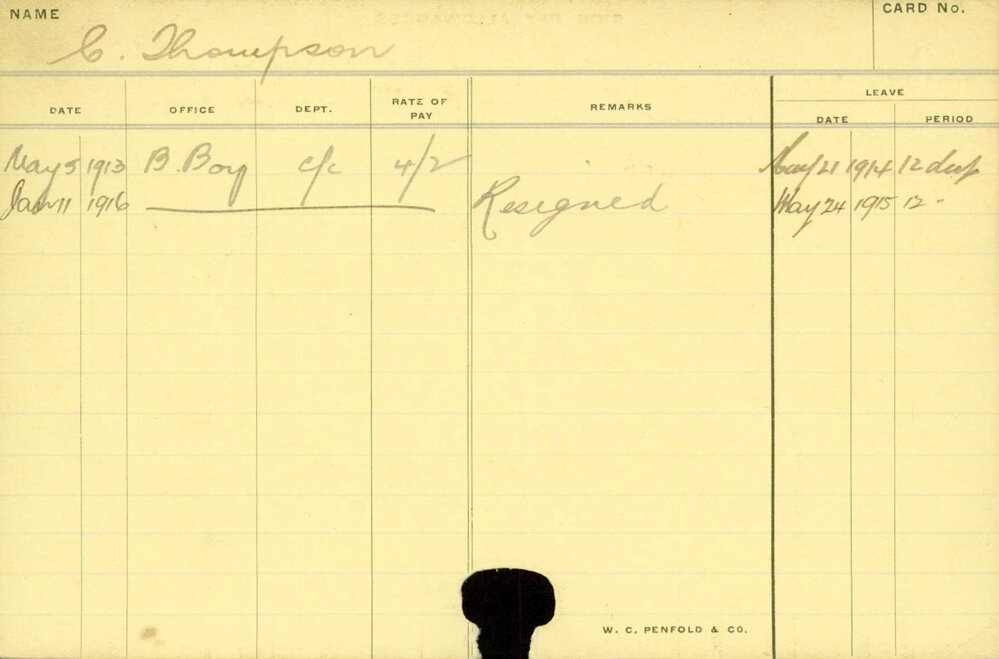 NAME
CARD No.
C. Thompson
LEAVE
DATE OFFICE DEPT. RATE OF PAY REMARKS DATE PERIOD
May 5 1913 B. Boy c/c 4/2 May 21 1914 12 days
Jan 11 1916 Resigned May 24 1915 12 "
W. C. PENFOLD & CO.